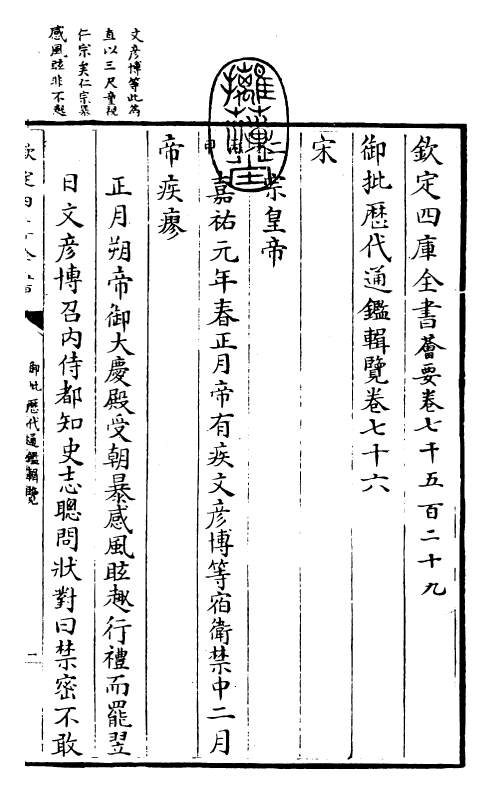 欽定四庫全書薈要卷七千五百二十九
御批歷代通鑑輯覽卷七十六
宋
仁宗皇帝
嘉祐元年春正月帝有疾文彦博等宿衛禁中二月
帝疾瘳
正月朔帝御大慶殿受朝暴感風眩趣行禮而罷翌
日文彦博召內侍都知史志聰問狀對曰禁密不敢
文彦博等此為
直以三尺童視
仁宗矣仁宗暴
感風眩非不起
欽定四庫全書
御批歷代通鑑輯覽